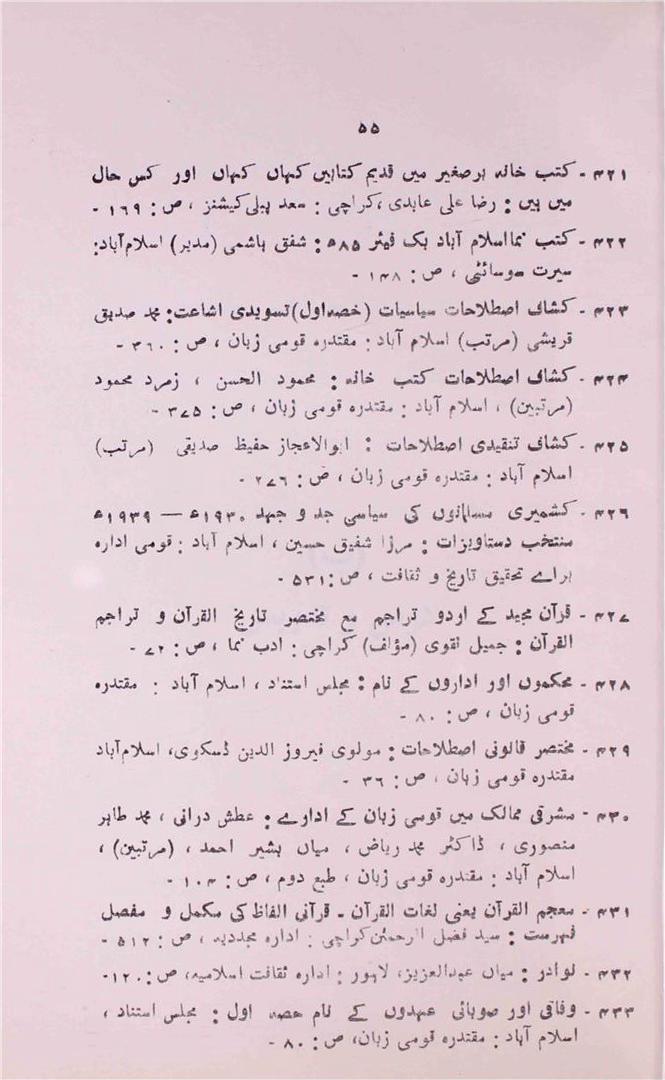 ۵۵
۴۲۱ - کتب خانہ برصغیر میں قدیم کتابیں کہاں کہاں اور کس حال
میں ہیں : رضا علی عابدی ، کراچی : سعد پبلی کیشنز ، ص : ۱۶۹ -
۴۲۲ - کتب نما اسلام آباد بک فیئر ۸۵ء : شفق ہاشمی (مدیر) اسلام آباد :
سیرت سوسائٹی ، ص : ۱۴۸ -
۴۲۳ - کشاف اصطلاحات سیاسیات (حصہ اول) تسویدی اشاعت : محمد صدیق
قریشی (مرتب) اسلام آباد : مقتدرہ قومی زبان ، ص : ۳۶۰ -
۴۲۴ - کشاف اصطلاحات کتب خانہ : محمود الحسن ، زمرد محمود
(مرتبین) ، اسلام آباد : مقتدرہ قومی زبان ، ص : ۳۷۵ -
۴۲۵ - کشاف تنقیدی اصطلاحات : ابوالاعجاز حفیظ صدیقی (مرتب)
اسلام آباد : مقتدرہ قومی زبان ، ص : ۲۷۶ -
۴۲۶ - کشمیری مسلمانوں کی سیاسی جد و جہد ۱۹۳۰ء — ۱۹۳۹ء
منتخب دستاویزات : مرزا شفیق حسین ، اسلام آباد : قومی ادارہ
برائے تحقیق تاریخ و ثقافت ، ص : ۵۳۱ -
۴۲۷ - قرآن مجید کے اردو تراجم مع مختصر تاریخ القرآن و تراجم
القرآن : جمیل نقوی (مؤلف) کراچی : ادب نما ، ص : ۷۲ -
۴۲۸ - محکموں اور اداروں کے نام : مجلس استناد ، اسلام آباد : مقتدرہ
قومی زبان ، ص : ۸۰ -
۴۲۹ - مختصر قانونی اصطلاحات : مولوی فیروز الدین ڈسکوی ، اسلام آباد
مقتدرہ قومی زبان ، ص : ۳۶ -
۴۳۰ - مشرقی ممالک میں قومی زبان کے ادارے : عطش درانی ، محمد طاہر
منصوری ، ڈاکٹر محمد ریاض ، میاں بشیر احمد ، (مرتبین) ،
اسلام آباد : مقتدرہ قومی زبان ، طبع دوم ، ص : ۱۰۴ -
۴۳۱ - معجم القرآن یعنی لغات القرآن - قرآنی الفاظ کی مکمل و مفصل
فہرست : سید فضل الرحمٰن کراچی : ادارہ مجددیہ ، ص : ۵۱۲ -
۴۳۲ - نوادر : میاں عبدالعزیز ، لاہور : ادارہ ثقافت اسلامیہ ، ص : ۱۲۰ -
۴۳۳ - وفاقی اور صوبائی عہدوں کے نام حصہ اول : مجلس استناد ،
اسلام آباد : مقتدرہ قومی زبان ، ص : ۸۰ -